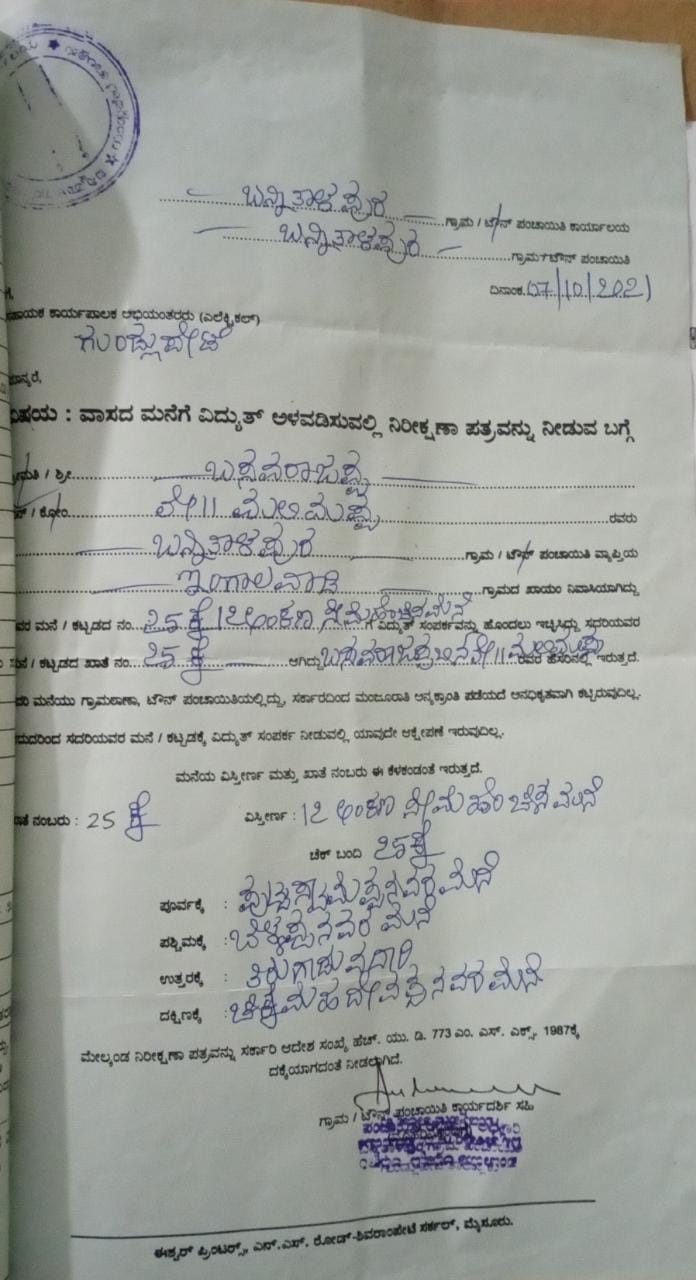 ಬನ್ನಿತಾಳಪುರ ಗ್ರಾಮ / ಟೌನ್ ಪಂಚಾಯಿತಿ ಕಾರ್ಯಾಲಯ
ಬನ್ನಿತಾಳಪುರ ಗ್ರಾಮ / ಟೌನ್ ಪಂಚಾಯಿತಿ
ದಿನಾಂಕ 07/10/2021
ಗೆ,
ಸಹಾಯಕ ಕಾರ್ಯಪಾಲಕ ಅಭಿಯಂತರರು (ಎಲೆಕ್ಟ್ರಿಕಲ್)
ಗುಂಡ್ಲುಪೇಟೆ
ಮಾನ್ಯರೆ,
ವಿಷಯ : ವಾಸದ ಮನೆಗೆ ವಿದ್ಯುತ್ ಅಳವಡಿಸುವಲ್ಲಿ ನಿರೀಕ್ಷಣಾ ಪತ್ರವನ್ನು ನೀಡುವ ಬಗ್ಗೆ
ಶ್ರೀಮತಿ / ಶ್ರೀ ಬಸವರಾಜಪ್ಪ
/ ಕೋಂ ಲೇ॥ ರವರು
ಬನ್ನಿತಾಳಪುರ ಗ್ರಾಮ / ಟೌನ್ ಪಂಚಾಯಿತಿ ವ್ಯಾಪ್ತಿಯ
ಇಂಗಾಲವಾಡಿ ಗ್ರಾಮದ ಖಾಯಂ ನಿವಾಸಿಯಾಗಿದ್ದು
ವರ ಮನೆ / ಕಟ್ಟಡದ ನಂ. 25 ಕೆ 12 ಅಂಕಣ ಗೆ ವಿದ್ಯುತ್ ಸಂಪರ್ಕವನ್ನು ಹೊಂದಲು ಇಚ್ಛಿಸಿದ್ದು ಸದರಿಯವರ
ಮನೆ / ಕಟ್ಟಡದ ಖಾತೆ ನಂ. 25 ಕೆ ಆಗಿದ್ದು ಬಸವರಾಜಪ್ಪ ಬಿನ್ ಲೇ॥ ರವರ ಹೆಸರಿನಲ್ಲಿ ಇರುತ್ತದೆ.
ಮನೆಯು ಗ್ರಾಮಠಾಣಾ, ಟೌನ್ ಪಂಚಾಯಿತಿಯಲ್ಲಿದ್ದು, ಸರ್ಕಾರದಿಂದ ಮಂಜೂರಾತಿ ಅನ್ಯಕ್ರಾಂತಿ ಪಡೆಯದೆ ಅನಧಿಕೃತವಾಗಿ ಕಟ್ಟಿರುವುದಿಲ್ಲ.
ದುದರಿಂದ ಸದರಿಯವರ ಮನೆ / ಕಟ್ಟಡಕ್ಕೆ ವಿದ್ಯುತ್ ಸಂಪರ್ಕ ನೀಡುವಲ್ಲಿ ಯಾವುದೇ ಆಕ್ಷೇಪಣೆ ಇರುವುದಿಲ್ಲ.
ಮನೆಯ ವಿಸ್ತೀರ್ಣ ಮತ್ತು ಖಾತೆ ನಂಬರು ಈ ಕೆಳಕಂಡಂತೆ ಇರುತ್ತದೆ.
ಖಾತೆ ನಂಬರು : 25 ಕೆ ವಿಸ್ತೀರ್ಣ : 12 ಅಂಕಣ ಸೀಮೆಹಂಚಿನ ಮನೆ
ಚೆಕ್ ಬಂದಿ 25 ಕೆ
ಪೂರ್ವಕ್ಕೆ : ಪುಟ್ಟಸ್ವಾಮಪ್ಪನವರ ಮನೆ
ಪಶ್ಚಿಮಕ್ಕೆ : ಬೆಳ್ಳಪ್ಪನವರ ಮನೆ
ಉತ್ತರಕ್ಕೆ : ತಿರುಗಾಡುವ ದಾರಿ
ದಕ್ಷಿಣಕ್ಕೆ : ಚಿಕ್ಕಮಹದೇವಪ್ಪನವರ ಮನೆ
ಮೇಲ್ಕಂಡ ನಿರೀಕ್ಷಣಾ ಪತ್ರವನ್ನು ಸರ್ಕಾರಿ ಆದೇಶ ಸಂಖ್ಯೆ ಹೆಚ್. ಯು. ಡಿ. 773 ಎಂ. ಎಸ್. ಎಕ್ಸ್, 1987ಕ್ಕೆ
ದಕ್ಕೆಯಾಗದಂತೆ ನೀಡಲಾಗಿದೆ.
ಗ್ರಾಮ / ಟೌನ್ ಪಂಚಾಯಿತಿ ಕಾರ್ಯದರ್ಶಿ ಸಹಿ
ಈಶ್ವರ್ ಪ್ರಿಂಟರ್ಸ್, ಎನ್.ಎಸ್. ರೋಡ್-ಶಿವರಾಂಪೇಟೆ ಸರ್ಕಲ್, ಮೈಸೂರು.